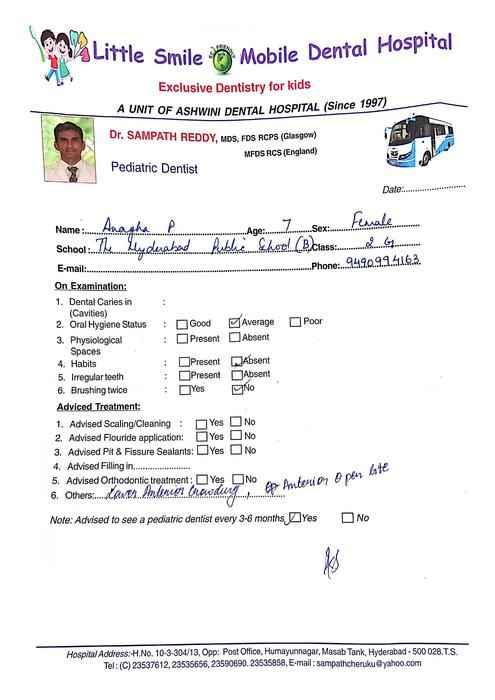 Little Smile Mobile Dental Hospital
Exclusive Dentistry for kids
A UNIT OF ASHWINI DENTAL HOSPITAL (Since 1997)
Dr. SAMPATH REDDY, MDS, FDS RCPS (Glasgow)
MFDS RCS (England)
Pediatric Dentist
Date:
Name: Anagha P Age: 7 Sex: Female
School: The Hyderabad Public School (B) Class: 2 G
E-mail: Phone: 9490994163
On Examination:
1. Dental Caries in :
(Cavities)
2. Oral Hygiene Status : Good Average Poor
3. Physiological : Present Absent
Spaces
4. Habits : Present Absent
5. Irregular teeth : Present Absent
6. Brushing twice : Yes No
Adviced Treatment:
1. Advised Scaling/Cleaning : Yes No
2. Advised Flouride application: Yes No
3. Advised Pit & Fissure Sealants: Yes No
4. Advised Filling in
5. Advised Orthodontic treatment : Yes No
6. Others: Lower Anterior Crowding, Anterior Open bite
Note: Advised to see a pediatric dentist every 3-6 months Yes No
Hospital Address:-H.No. 10-3-304/13, Opp: Post Office, Humayunnagar, Masab Tank, Hyderabad - 500 028.T.S.
Tel : (C) 23537612, 23535656, 23590690. 23535858, E-mail : sampathcheruku@yahoo.com